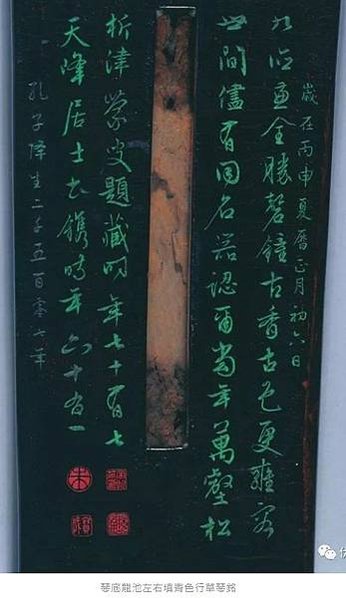 歲在丙申夏曆正月初六日
九德兼全勝磬鐘古香古色更雍容
世間儘有同名器認爾當年萬壑松
析津蒙叟題藏時年七十有七
天峰居士書鐫時年六十有一
孔子降生二千五百零七年
朱
琴底龍池左右填青色行草琴銘